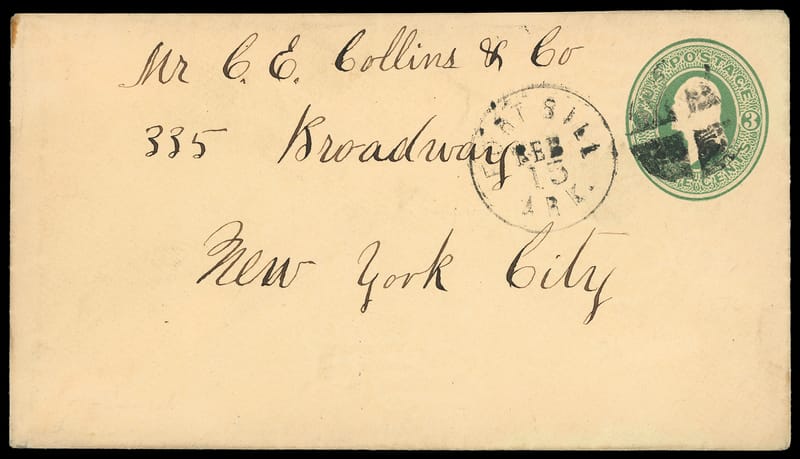 Mr C. E. Collins & Co
335 Broadway
New York City
FORT SILL
FEB
15
ARK.
U.S. POSTAGE
3
CENTS